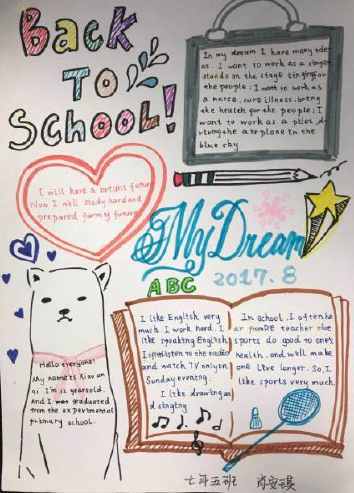 BACK
TO
SCHOOL!
In my dream I have many
as. I want to work as a singer
stands on the stage singing for
the people; I want to work as
a nurse, cure illness, bring
the health for the people; I
want to work as a pilot, d
the air plane in the
blue sky
I will have a bright future
Now I will study hard and
prepared for my future
My Dream
ABC
2017.8
Hello everyone!
My name is
I'm 12 years old.
And I was graduated
from the experimental
primary school.
I like English very
much. I work hard. I
like speaking English,
I often listen to the radio
and watch TV only on
Sunday evening.
I like drawing and
singing
In school, I often he
ar from PE teacher that
sports do good to one's
health, and will make
one live longer. So, I
like sports very much.
七年五班